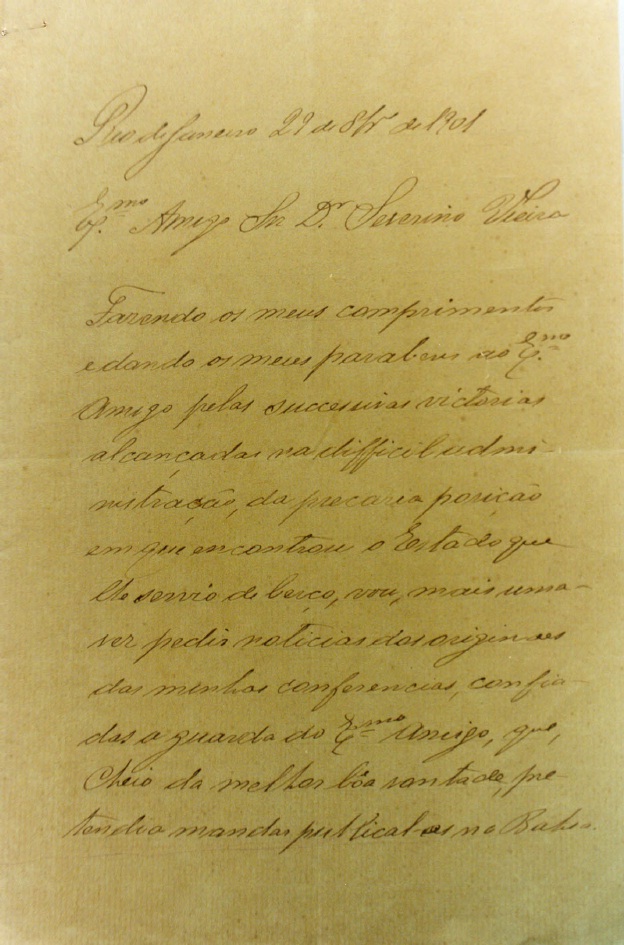 Rio de Janeiro 29 de 8br de 1901
Ex.mo Amigo Snr D.r Severino Vieira
Fazendo os meus comprimentos
e dando os meus parabens ao Ex.mo
Amigo pelas successivas victorias
alcançadas na difficil admi-
nistração, da precaria posição
em que encontrou o Estado que
lhe servio de berço, vou, mais uma
vez pedir noticias dos originaes
das minhas conferencias, confia-
das a guarda do Ex.mo Amigo, que,
cheio da melhor bôa vontade, pre-
tendia mandar publical-as na Bahia.